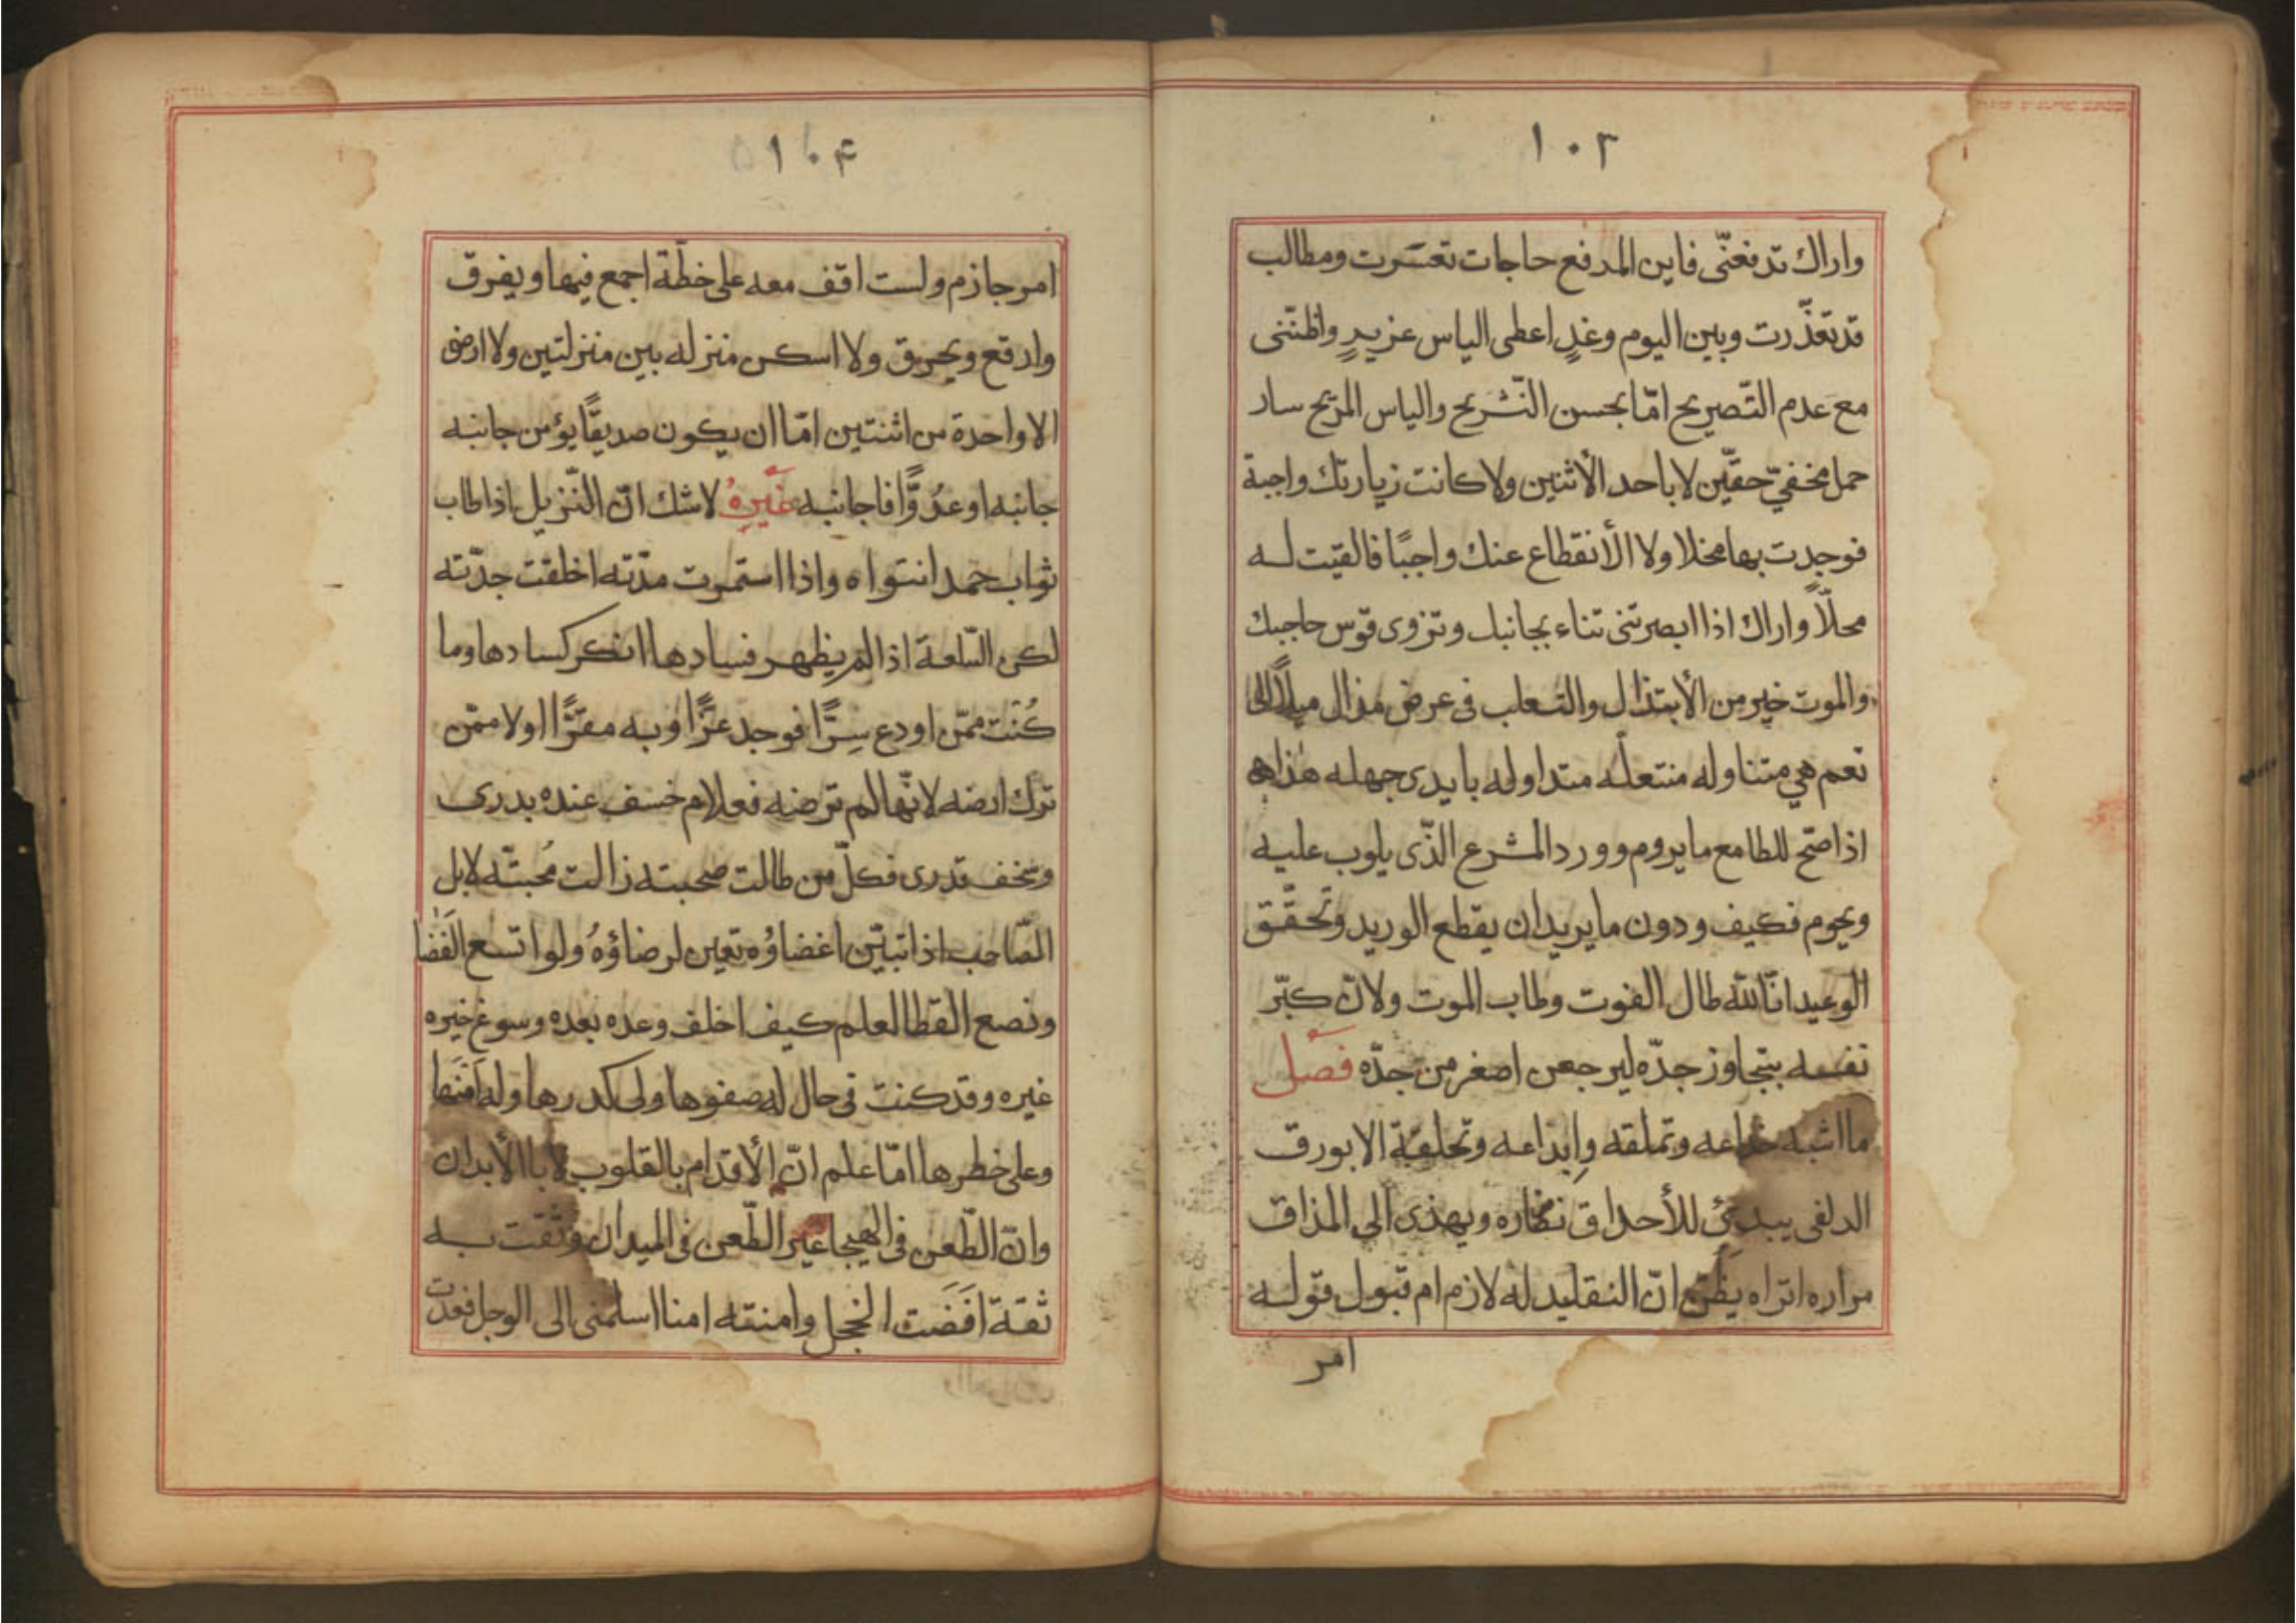 ١٠٣
واراك تدفعنّى فاين المدفع حاجات تعسّرت ومطالب
قد تعذّرت وبين اليوم وغدٍ اعطى الياس عزيدٍ واظنّنى
مع عدم التّصريح امّا بحسن التّشريح والياس المريح سار
حمل مخفيّ حقّين لا باحد الأثنين ولا كانت زيارتك واجبة
فوجدت بها مخلا ولا الأنقطاع عنك واجبًا فالقيت له
محلّاً واراك اذا ابصرتنى تناء بجانبك وتزوى قوس حاجبك
والموت خير من الأبتذال والتعلب فى عرض مذال ميلاً الى
نعم هي متناوله منتعلّه متداوله بايدى جهله هذا هو
اذا صحّ للطامع ما يروم وورد المشرع الذّى يلوب عليه
ويحوم فكيف ودون ما يريد ان يقطع الوريد وتحقّق
الوعيد انّا لله طال الفوت وطاب الموت ولانّ كبّر
نفسه بتجاوز جدّه ليرجعن اصغر من جدّه فصل
ما اشبه خداعه وتملقه وابداعه وتخلقه الا بورق
الدلفى يبدئ للأحداق نضاره ويهذى الى المذاق
مراره اتراه يظن انّ التقليد له لازم ام قبول قوله
امر
١٠۴
امر جازم ولست اقف معه على خطّة اجمع فيها ويفرق
وارقع ويحريق ولا اسكن منزله بين منزلتين ولا ارضى
الا واحدة من اثنتين امّا ان يكون صديقًا يؤمن جانبه
جانبه او عدُوًّا فاجانبه غيرهُ لاشك انّ النّزيل اذا طاب
ثواب حمد انتواه واذا استمرت مدّته اخلقت جدّته
لكن السّلعة اذا لم يظهر فسادها انكر كسادها وما
كُنت ممّن اودع سِرًّا فوجد عزًّا وبه مقرًّا اولا ممّن
ترك ارضه لانّها لم ترضه فعلام خسف عنده بدرى
وسخف قدرى فكلّ من طالت صحبته زالت مُحبتّه لابل
الصّاحب اذا تبيّن اغضاؤه تعين لرضاؤهُ ولو اتسع الفضا
ونصع القطا لعلم كيف اخلف وعده بعده وسوغ خيره
غيره وقد كنت فى حال له صفوها ولى كدرها وله
وعلى خطرها امّا علم انّ الأقدام بالقلوب لا بالأبدان
وانّ الطّعن فى الهيجا غير الطّعن فى الميدان وثقت به
ثقة افضت الخجل وامنته امنا اسلمنى الى الوجل فعدت